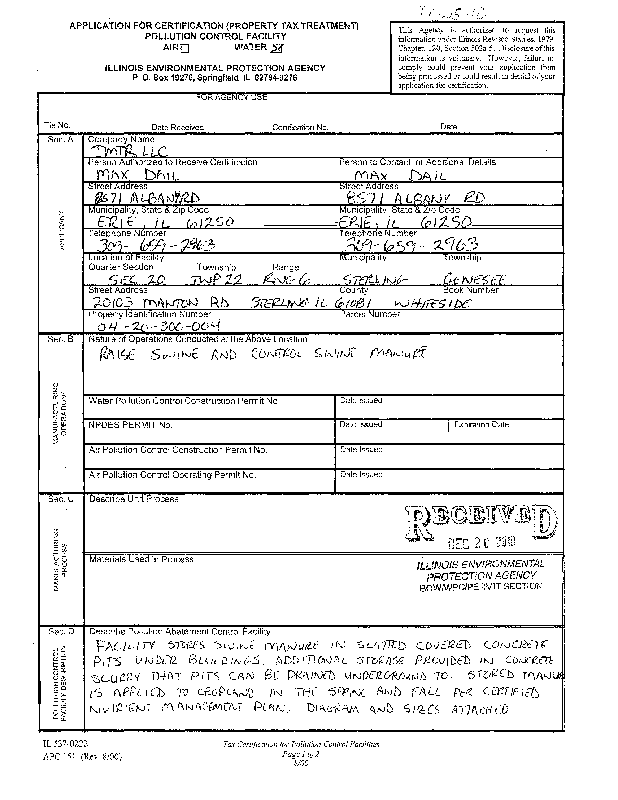 APPLICATION FOR CERTIFICATION (PROPERTY TAX TREATMENT)
POLLUTION CONTROL FACILITY
AIR WATER
ILLINOIS ENVIRONMENTAL PROTECTION AGENCY
P. O. Box 19276, Springfield, IL 62794-9276
This Agency is authorized to request this
information under Illinois Revised Statutes, 1979,
Chapter 120, Section 502a-5. Disclosure of this
information is voluntary. However, failure to
comply could prevent your application from
being processed or could result in denial of your
application for certification.
FOR AGENCY USE
File No. Date Received Certification No. Date
Sec. A Company Name
TMTR LLC
Person Authorized to Receive Certification Person to Contact for Additional Details
MAX DAIL MAX DAIL
Street Address Street Address
8571 ALBANY RD 8571 ALBANY RD
Municipality, State & Zip Code Municipality, State & Zip Code
ERIE, IL 61250 ERIE, IL 61250
Telephone Number Telephone Number
309-659-2963 309-659-2963
APPLICANT
Location of Facility Municipality Township
Quarter Section Township Range
SEC 20 TWP 22 RNG 6 STERLING GENESEE
Street Address County Book Number
20103 MANTON RD STERLING IL 61081 WHITESIDE
Property Identification Number Parcel Number
04-20-300-004
Sec. B Nature of Operations Conducted at the Above Location
RAISE SWINE AND CONTROL SWINE MANURE
MANUFACTURING
OPERATIONS
Water Pollution Control Construction Permit No. Date Issued
NPDES PERMIT No. Date Issued Expiration Date
Air Pollution Control Construction Permit No. Date Issued
Air Pollution Control Operating Permit No. Date Issued
Sec. C Describe Unit Process
RECEIVED
DEC 20
MANUFACTURING
PROCESS
Materials Used in Process
ILLINOIS ENVIRONMENTAL
PROTECTION AGENCY
BOW/WPC/PERMIT SECTION
Sec. D Describe Pollution Abatement Control Facility
FACILITY STORES SWINE MANURE IN SLATTED COVERED CONCRETE
PITS UNDER BUILDINGS. ADDITIONAL STORAGE PROVIDED IN CONCRETE
SLURRY THAT PITS CAN BE DRAINED UNDERGROUND TO. STORED MANURE
IS APPLIED TO CROPLAND IN THE SPRING AND FALL PER CERTIFIED
NUTRIENT MANAGEMENT PLAN. DIAGRAM AND SIZES ATTACHED
POLLUTION CONTROL
FACILITY DESCRIPTION
IL 532-0222 Tax Certification for Pollution Control Facilities
APC 151 (Rev. 8/00) Page 1 of 2
8/00